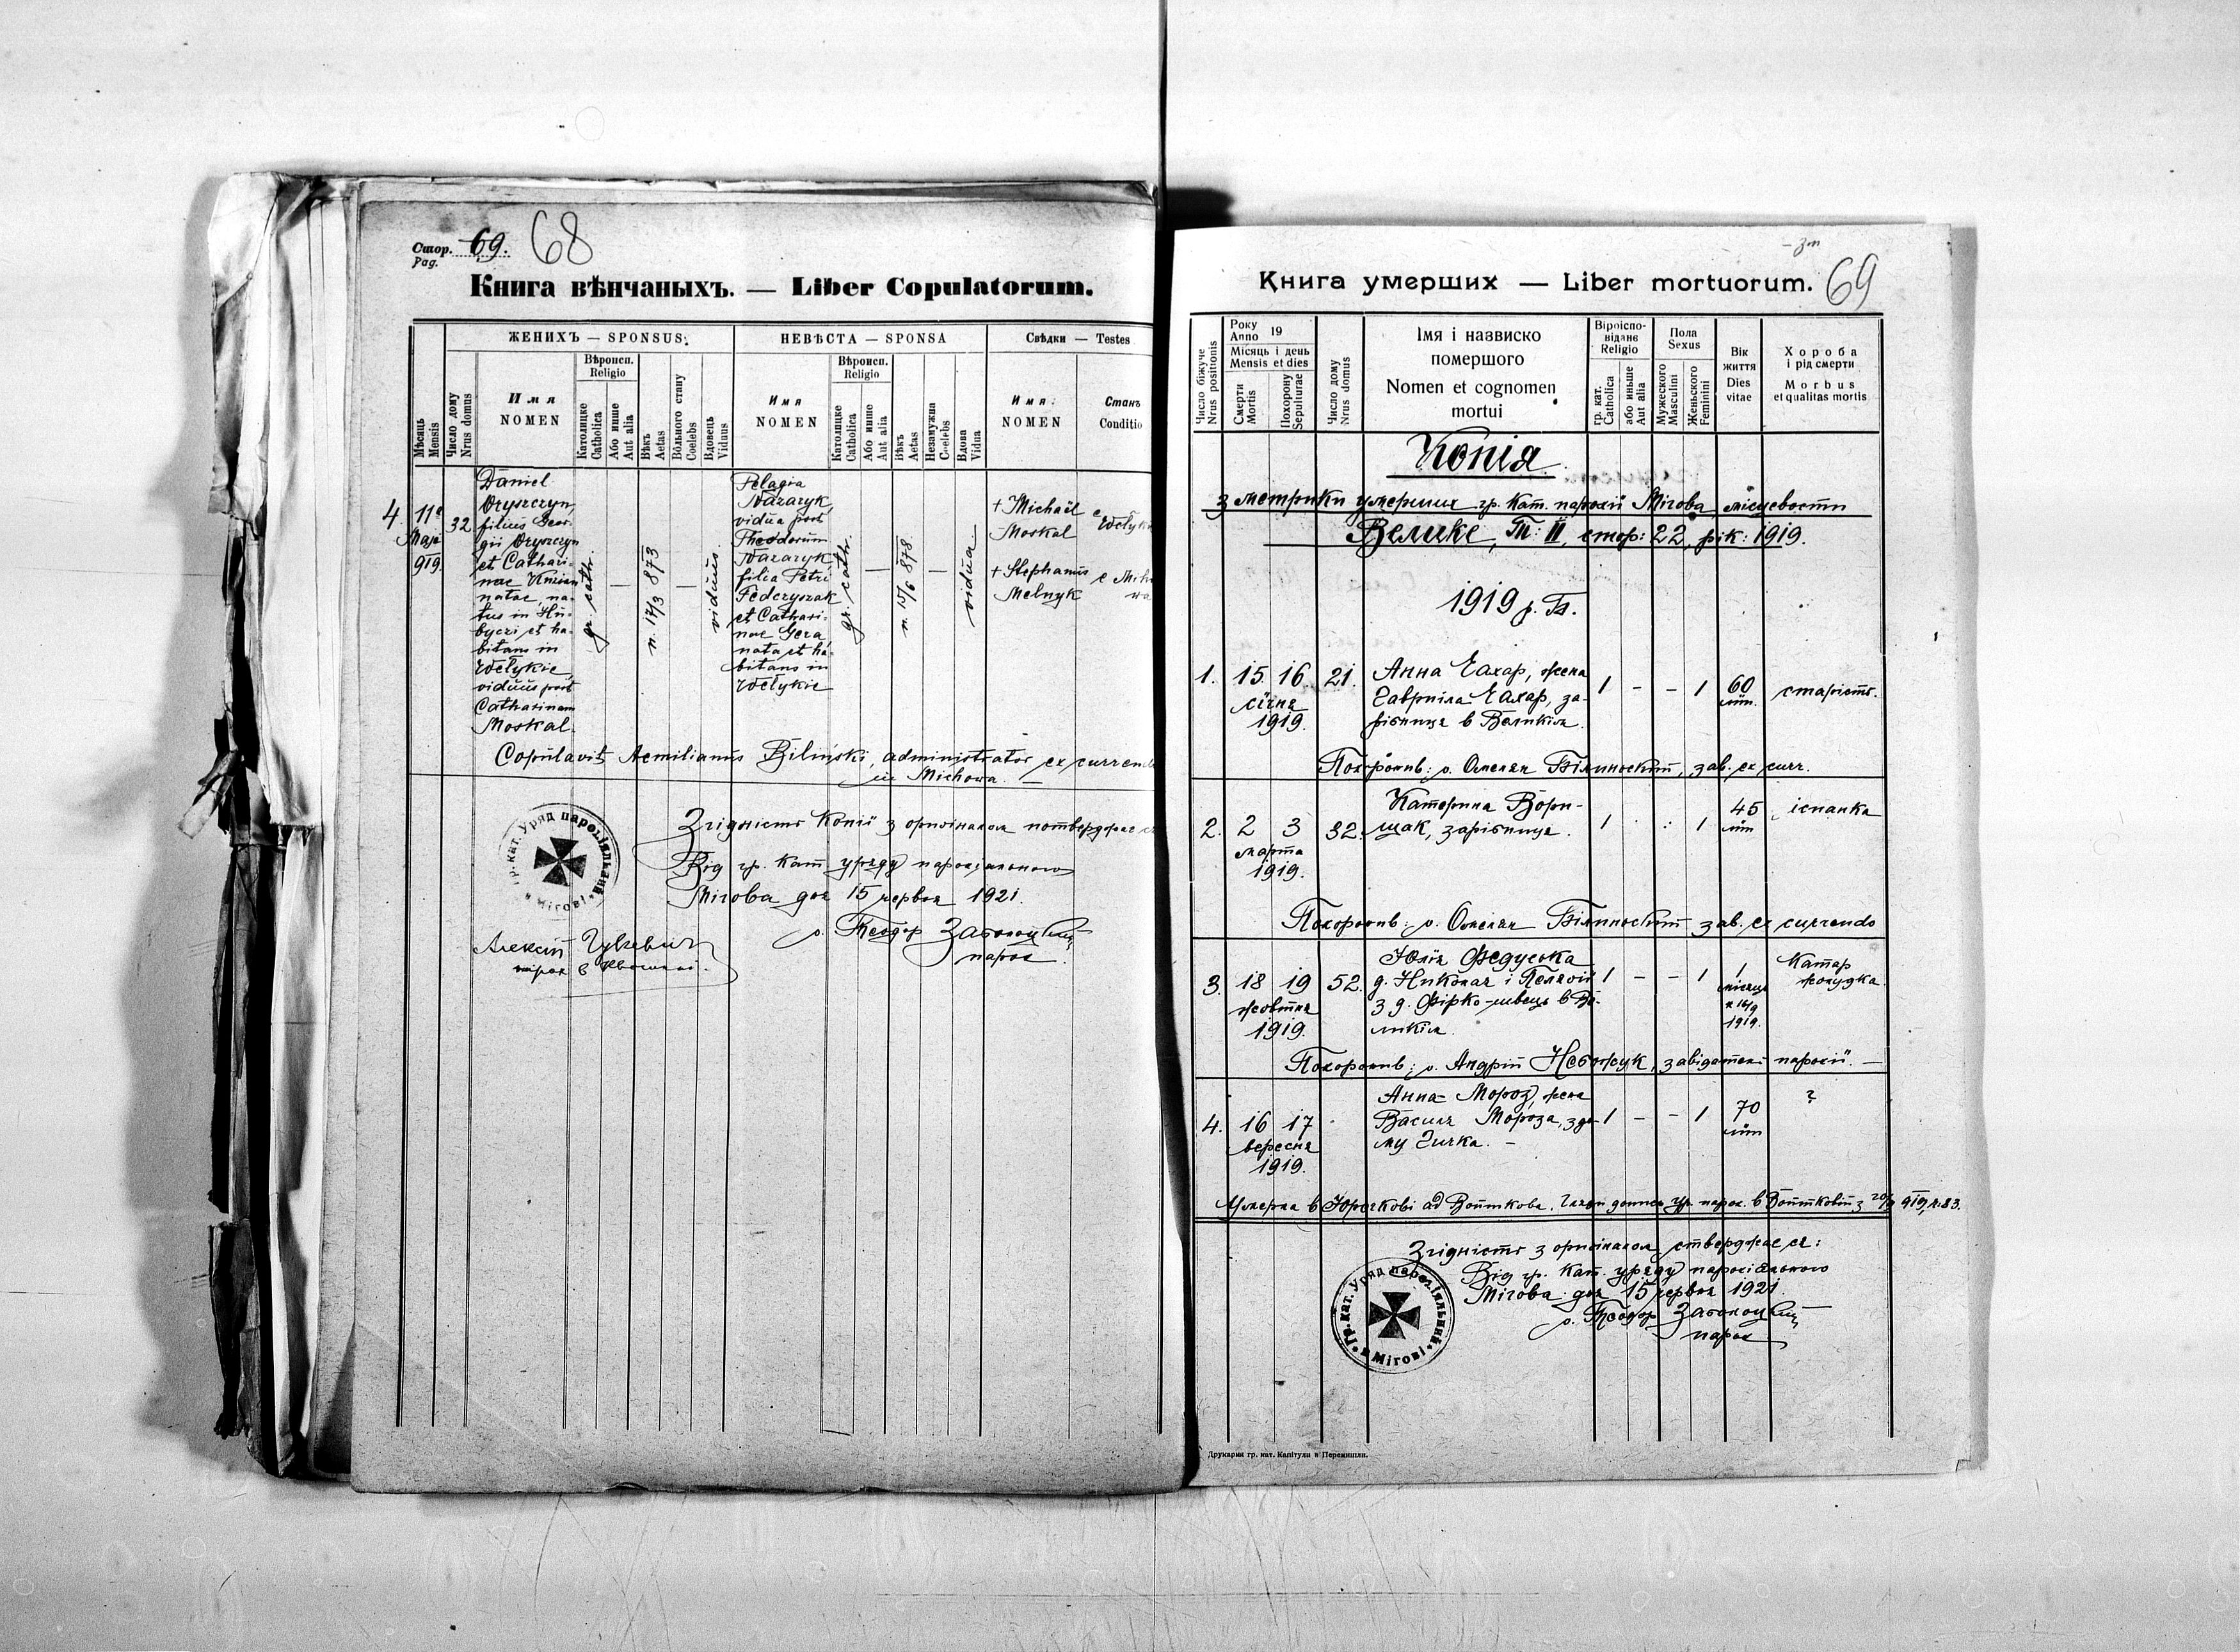 Стор. 69. 68
Pag.
Книга вѣнчаныхъ. — Liber Copulatorum.
ЖЕНИХЪ — SPONSUS.
НЕВѢСТА — SPONSA
Свѣдки — Testes
Мѣсяць
Mensis
Число дому
Nrus domus
Имя
NOMEN
Вѣроисп.
Religio
Католицке
Catholica
Або инше
Aut alia
Вѣкъ
Aetas
Вôльного стану
Coelebs
Вдовець
Viduus
Имя
NOMEN
Вѣроисп.
Religio
Католицке
Catholica
Або инше
Aut alia
Вѣкъ
Aetas
Незамужна
Coelebs
Вдова
Vidua
Имя:
NOMEN
Станъ
Conditio
4. 11a
Maji
919.
32
Daniel
Oryszczyn,
filius Geor-
gii Oryszczyn
et Cathari-
nae
natae, na-
tus in Hu-
byczi et ha-
bitans in
Wełykie,
viduus post
Catharinam
Moskal.
gr. cath.
—
n. 17/3 873
—
viduus
Pelagia
Nazaryk,
vidua post
Theodorum
Nazaryk,
filia Petri
Federyszak
et Cathari-
nae Gera,
nata et ha-
bitans in
Wełykie
gr. cath.
—
n. 15/6 878.
—
vidua
+ Michaël
Moskal
+ Stephanus
Melnyk
Copulavit Aemilianus Biliński, administrator ex currendo
in Michowa. —
Згідність копії з оригіналом потверджає ся
Від гр. кат. уряду парохіяльного
Мігова дня 15 червня 1921.
о. Теодор Заболоцкий
парох.
Гр. кат. Уряд парохіяльний в Мігові
Алексій
парох в
69
Книга умерших — Liber mortuorum.
Число біжуче
Nrus positionis
Року
Anno 19
Місяць і день
Mensis et dies
Смерти
Mortis
Похорону
Sepulturae
Число дому
Nrus domus
Імя і назвиско
помершого
Nomen et cognomen
mortui
Віроіспо-
відане
Religio
гр. кат.
Catholica
або иньше
Aut alia
Пола
Sexus
Мужеского
Masculini
Женьского
Feminini
Вік
життя
Dies
vitae
Хороба
і рід смерти
Morbus
et qualitas mortis
Копія
з метрики умерших гр. кат. парохії Мігова місцевости
Велике, Т: II, стор: 22, рік: 1919.
1919 р. Б.
1. 15 16 21.
січня
1919.
Анна Гахар, жена
Гавриїла Гахар, за-
рібниця в Великім.
1 - - 1
60
літ.
старість.
Похоронив: о. Омелян Білиньский, зав. ex curr.
2. 2 3 32.
марта
1919.
Катерина Вори-
щак, зарібниця.
1 . : 1
45
літ
іспанка
Похоронив: о. Омелян Білиньский зав. ex currendo
3. 18 19 52.
жовтня
1919.
Юлія Федуська
д. Николая і Пелягії
з д. Фірко-швець в Ве-
ликім.
1 - - 1
1
місяць
н 16/9
1919.
Катар
жолудка.
Похоронив: о. Андрій Небожук, завідатель парохії. —
4. 16 17
вересня
1919.
Анна Мороз, жена
Василя Мороза, з до-
му Гичка. —
1 - - 1
70
літ
?
Умерла в Юречкові ад Войткова. допись Ур. парох. в Войтковій з 20/9 919, ч. 83.
Згідність з оригіналом стверджає ся:
Від гр. кат. уряду парохіяльного
Мігова дня 15 червня 1921.
о. Теодор Заболоцкий
парох
Гр. кат. Уряд парохіяльний в Мігові
Друкарня гр. кат. Капітули в Перемишли.